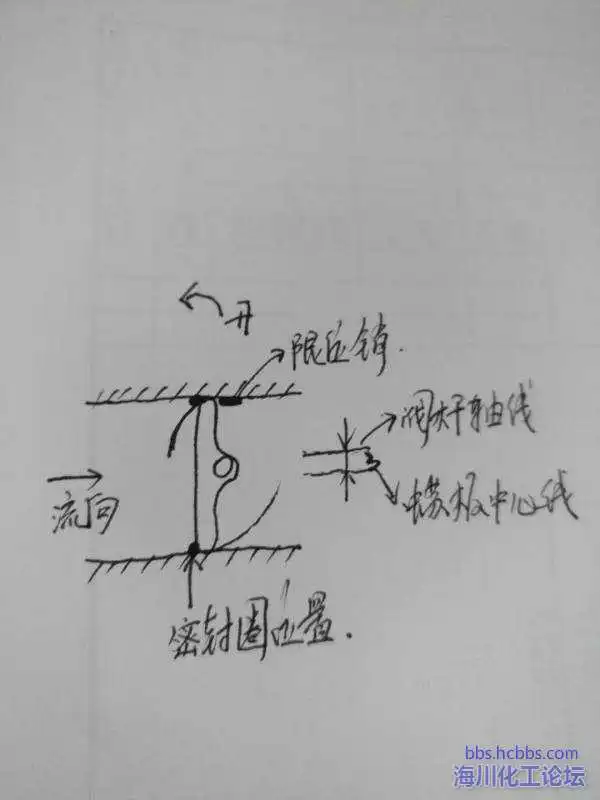 开
限位销.
阀杆轴线
流向
蝶板中心线
密封圈位置.
bbs.hcbbs.com
海川化工论坛